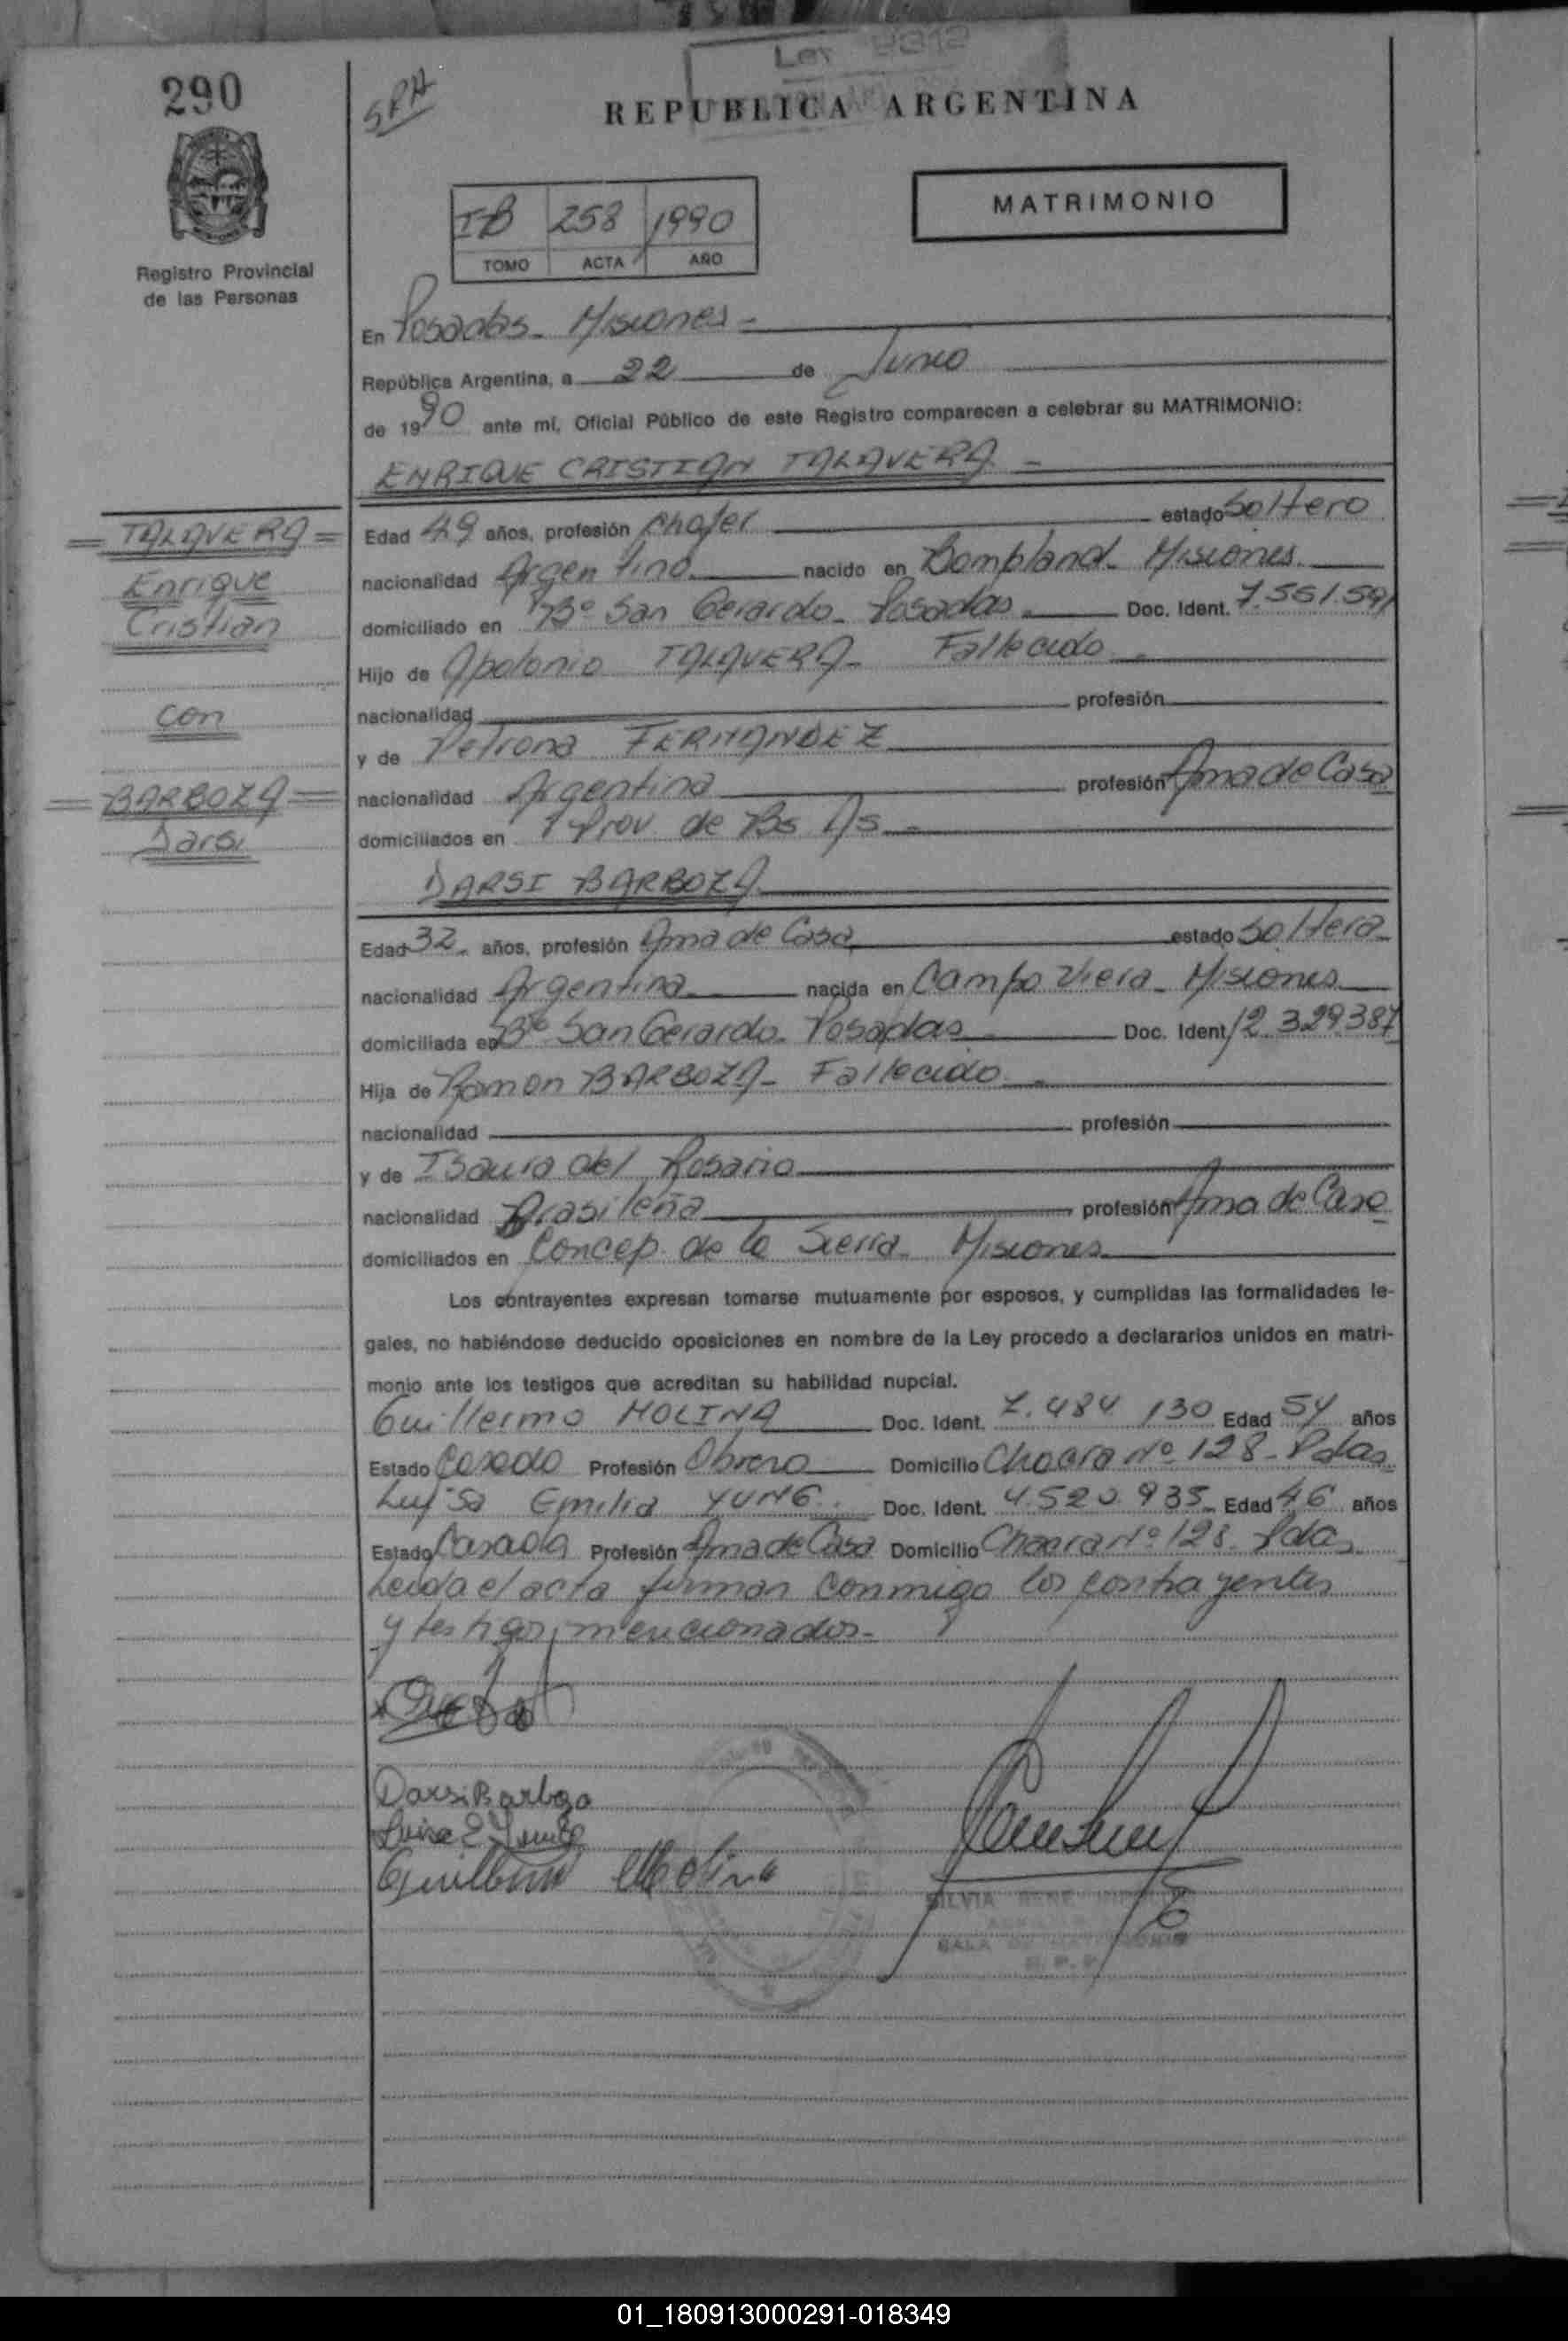 290
SRA
Ley 8912
REPUBLICA ARGENTINA
MATRIMONIO
IB 258 1990
TOMO ACTA AÑO
Registro Provincial
de las Personas
En Posadas - Misiones -
República Argentina, a 22 de Junio
de 1990 ante mí, Oficial Público de este Registro comparecen a celebrar su MATRIMONIO:
ENRIQUE CRISTIAN TALAVERA -
Edad 49 años, profesión chofer estado Soltero
nacionalidad Argentino nacido en Bompland - Misiones
domiciliado en Bº San Gerardo - Posadas Doc. Ident. 7.551.591
Hijo de Apolonio TALAVERA - Fallecido
nacionalidad profesión
y de Petrona FERNANDEZ
nacionalidad Argentina profesión Ama de Casa
domiciliados en Prov. de Bs As -
DARSI BARBOZA
Edad 32 años, profesión Ama de Casa estado Soltera
nacionalidad Argentina nacida en Campo Viera - Misiones
domiciliada en Bº San Gerardo - Posadas Doc. Ident. 12.329.387
Hija de Ramon BARBOZA - Fallecido
nacionalidad profesión
y de Isaura del Rosario
nacionalidad Brasileña profesión Ama de Casa
domiciliados en Concep. de la Sierra - Misiones
Los contrayentes expresan tomarse mutuamente por esposos, y cumplidas las formalidades le-
gales, no habiéndose deducido oposiciones en nombre de la Ley procedo a declararlos unidos en matri-
monio ante los testigos que acreditan su habilidad nupcial.
Guillermo MOLINA Doc. Ident. 7.484.130 Edad 54 años
Estado Casado Profesión Obrero Domicilio Chacra Nº 128 - Pdas
Luisa Emilia YUNG Doc. Ident. 4.520.935 Edad 46 años
Estado Casada Profesión Ama de Casa Domicilio Chacra Nº 128 - Pdas
Leida el acta firman conmigo los contrayentes
y testigos mencionados -
= TALAVERA =
Enrique
Cristian
con
= BARBOZA =
Darsi
Darsi Barboza
Luisa E Yung
Guillermo Molina
SILVIA RENE
SALA DE
01_180913000291-018349